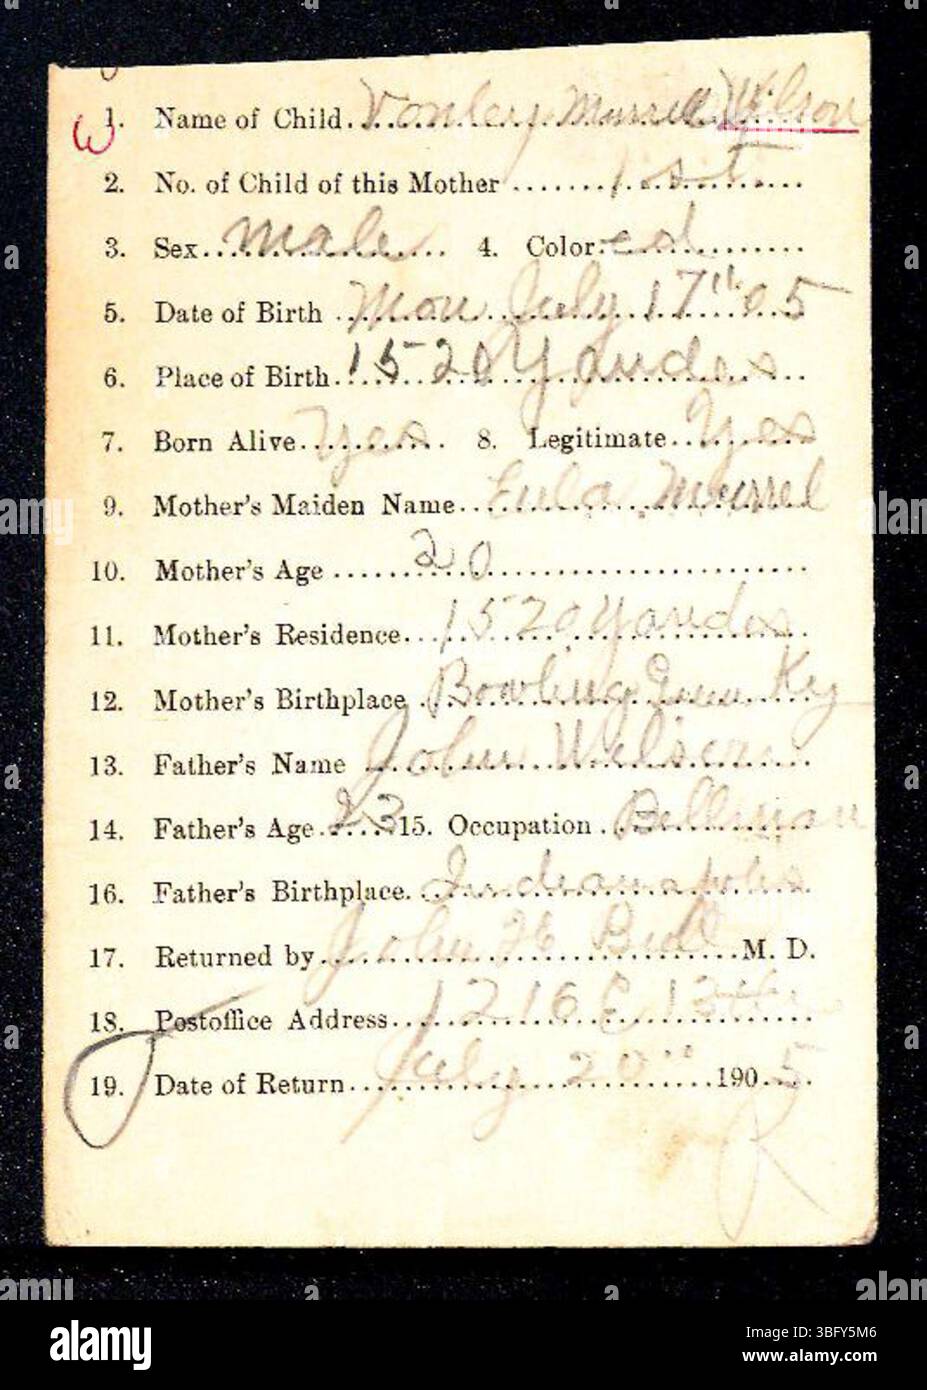 1. Name of Child. Vonley Murrell Wilson
2. No. of Child of this Mother 1st
3. Sex male 4. Color: cd
5. Date of Birth Mon July 17" 05
6. Place of Birth 1520 Yandes
7. Born Alive yes 8. Legitimate yes
9. Mother's Maiden Name Eula Murrel
10. Mother's Age 20
11. Mother's Residence 1520 Yandes
12. Mother's Birthplace Bowling Green Ky
13. Father's Name John Wilson
14. Father's Age 23 15. Occupation Bellman
16. Father's Birthplace Indianapolis
17. Returned by John H M. D.
18. Postoffice Address 1216 E 13th
19. Date of Return July 20" 1905
alamy
Image ID: 3BFY5M6
www.alamy.com